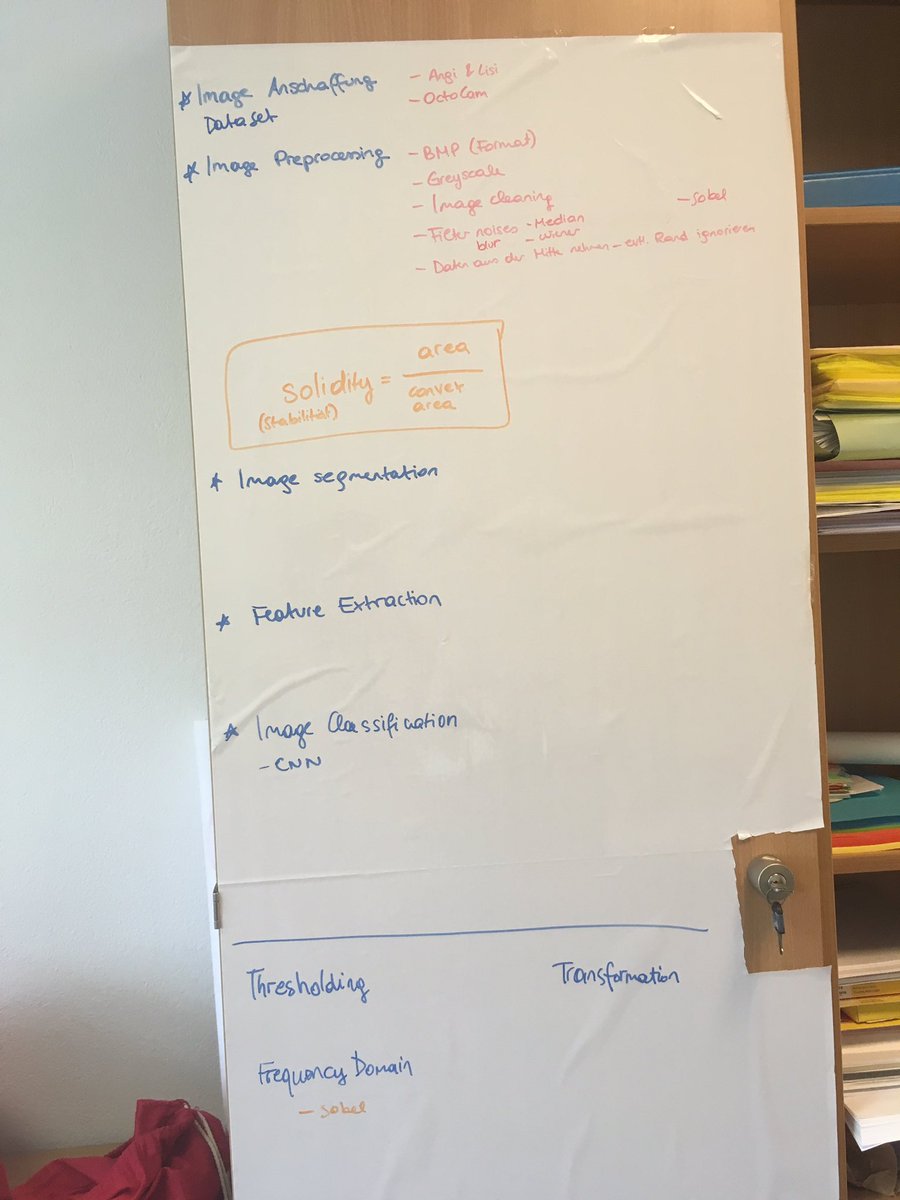 * Image Anschaffung
Dataset
- Angi & Lisi
- OctoCam
* Image Preprocessing
- BMP (Format)
- Greyscale
- Image cleaning
- Sobel
- Filter noises - Median
blur - wiener
- Daten aus der Mitte nehmen - evtl. Rand ignorieren
area
solidity =
(Stabilität)
convex
area
* Image segmentation
* Feature Extraction
* Image Classification
- CNN
Thresholding
Transformation
Frequency Domain
- Sobel